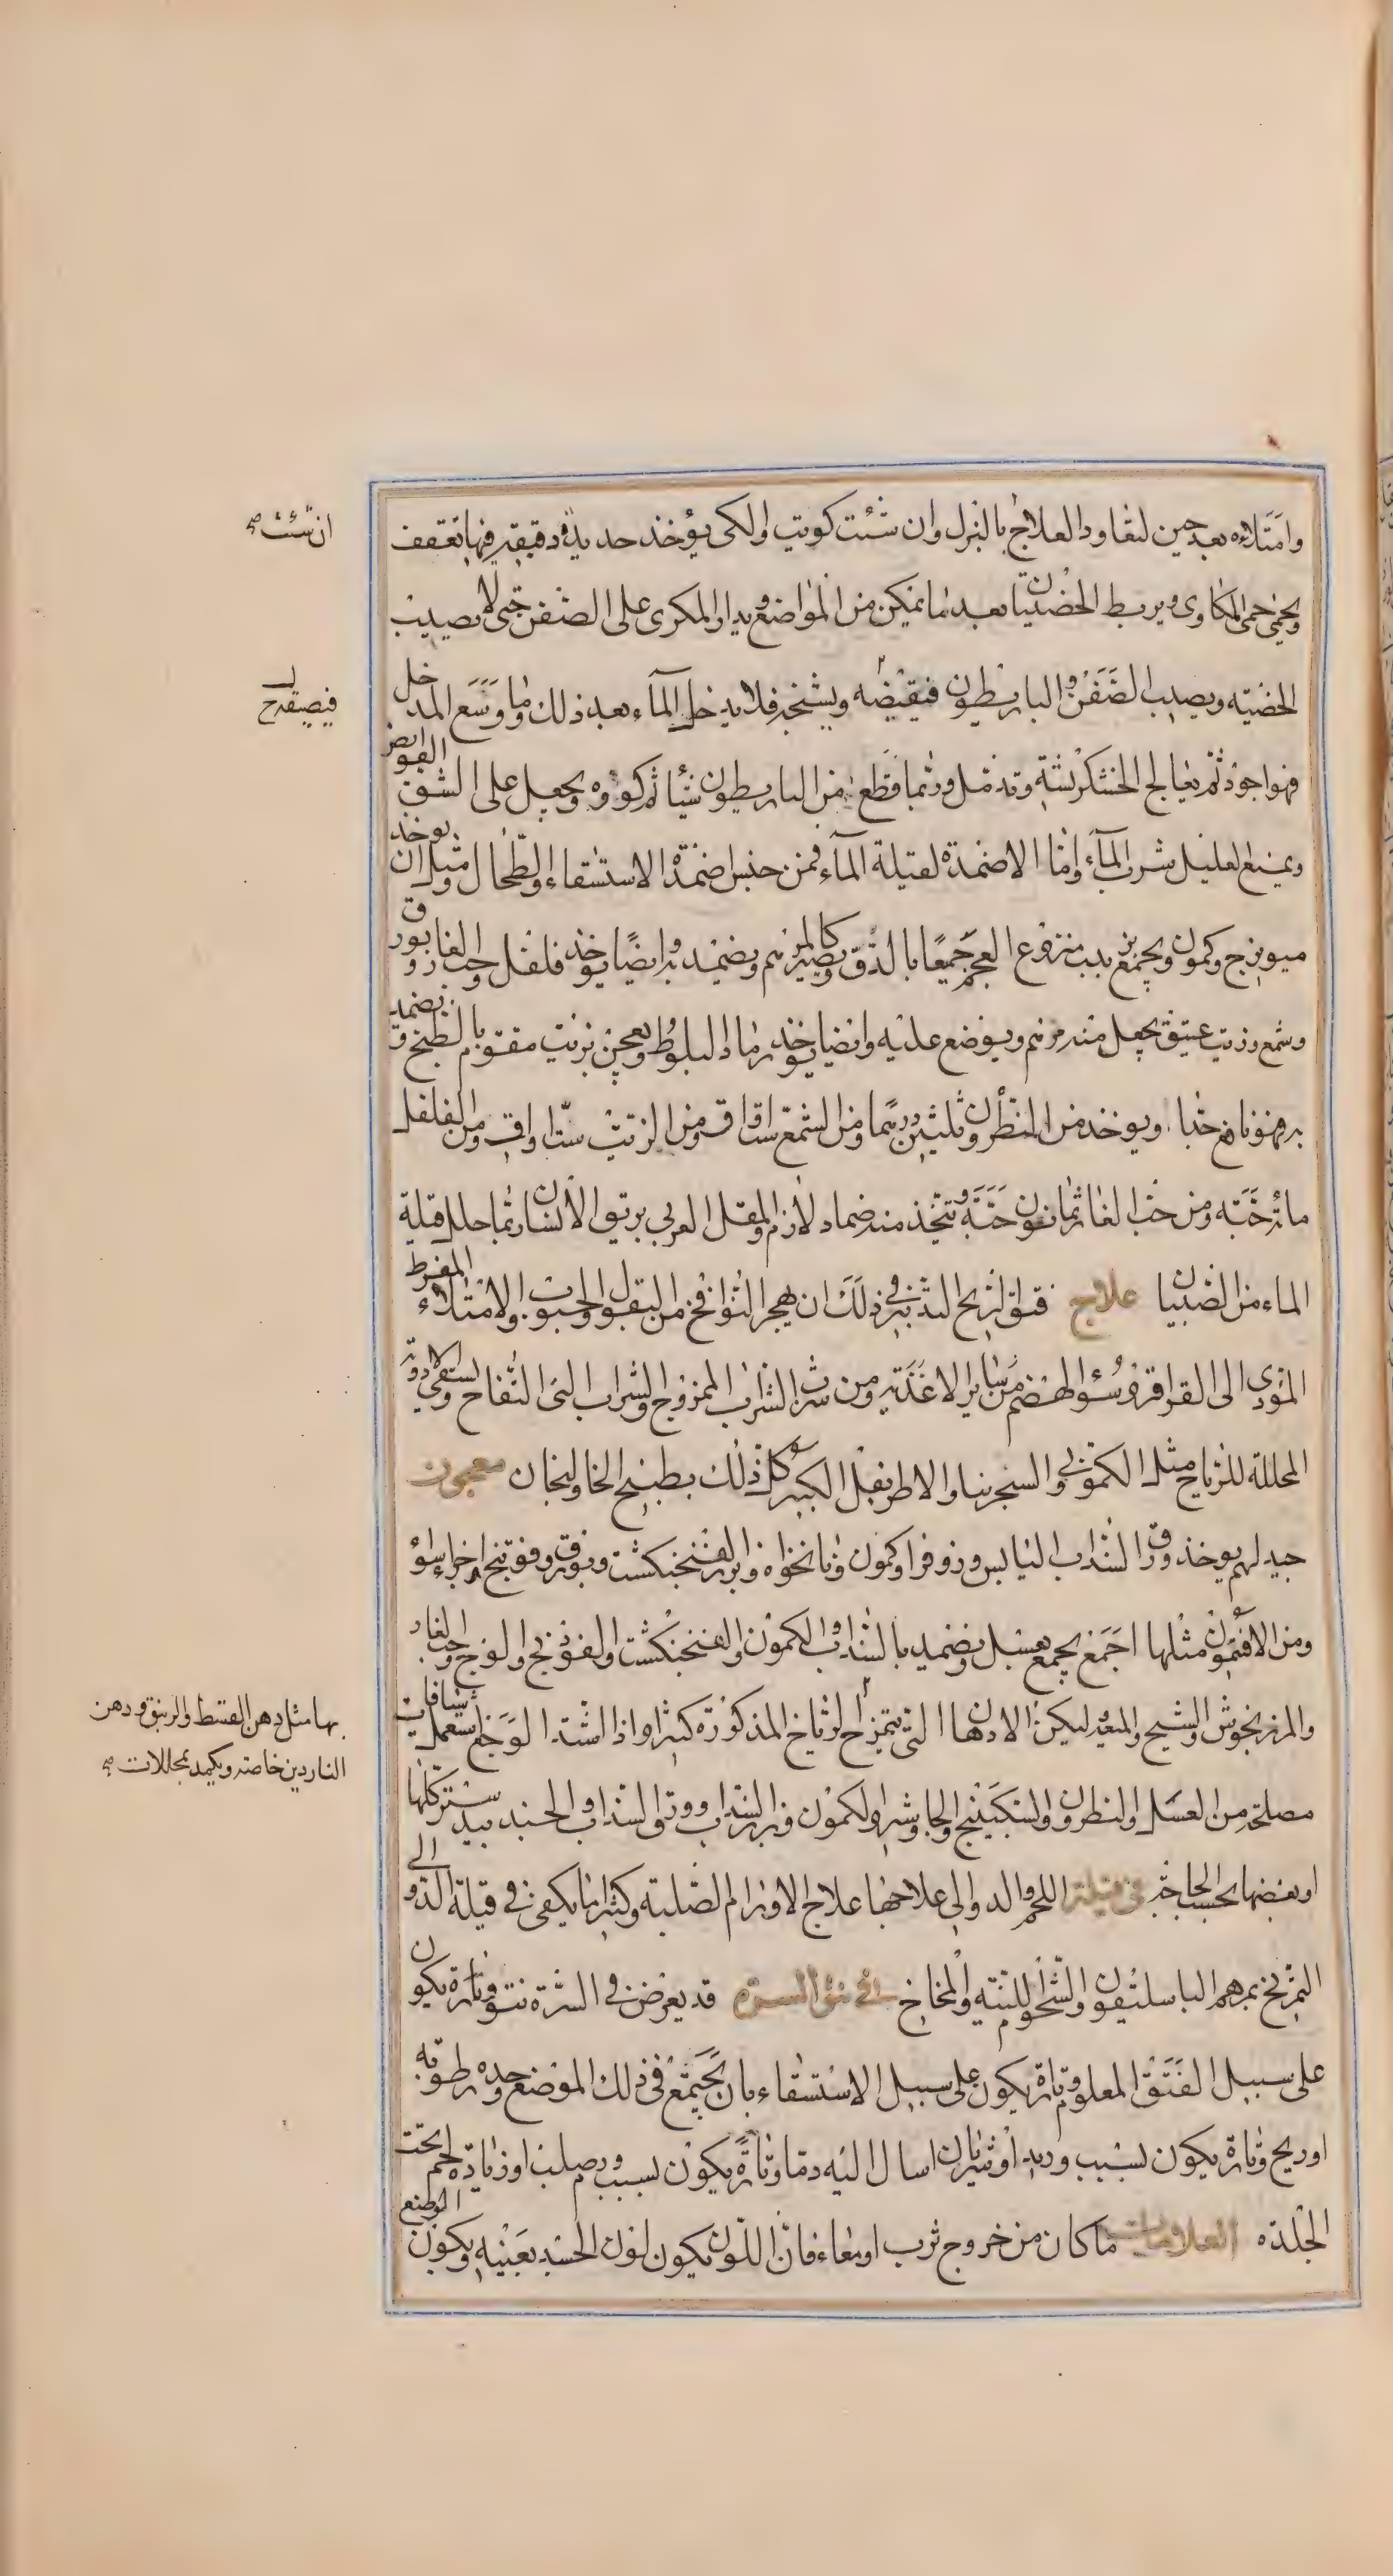 وامتلاءه بعد حين لتعاود العلاج بالبزل وان شئت كويت والكى يؤخذ حديدة دقيقة فيها تعقف
ويحمى حمى المكاوى ويربط الخصيتان بعد ما تمكن من المواضع ويدار المكوى على الصفن حتى لا يصيب
الخصيه ويصيب الصفن والباريطون فيقبضه ويشنجه فلا يدخل الماء بعد ذلك وما وسع المدخل
فهو اجود ثم يعالج الخشكريشة وتدمل وربما قطع من الباريطون شيئا ثم كووه ويجعل على الشق القوابض
ويمنع العليل شرب الماء واما الاضمدة لقيلة الماء فمن جنس اضمدة الاستسقاء والطحال ومثل ان يوخذ
ميويزج وكمون ويجمع بزبيب منزوع العجم جميعا بالدق ويصير كالمرهم ويضمد به وايضا يوخذ فلفل وحب الغار وبورق
وشمع وزيت عتيق يجعل منه مرهم ويوضع عليه وايضا يوخذ رماد البلوط ويعجن بزيت مقوم بالطبخ ويضمد
به فهو نافع جدا ويوخذ من النطرون ثلثين درهما ومن الشمع ست اواق ومن الزيت ست اواق ومن الفلفل
مائة حبة ومن حب الغار ثمانون حبة ويتخذ منه ضماد لازم والمقل العربى بريق الانسان ربما حلل قيلة
الماء من الصبيان علاج فتق الريح التدبير فى ذلك ان يهجر النوافخ من البقول والحبوب والامتلاء المفرط
المؤدى الى القراقر وسوء الهضم من سائر الاغذية ومن شرب الشراب الممزوج والشراب النى النفاخ ويستقى الادوية
المحللة للرياح مثل الكمونى والسنجرينا والاطريفل الكبير كل ذلك بطبيخ الخاولنجان معجون
جيد لهم يوخذ ورق السذاب اليابس وزوفرا وكمون ونانخواه وبزر الفنجنكشت وبورق وفوتنج اجزاء سواء
ومن الافتيمون مثلها اجمع يجمع بعسل ويضمد بالسذاب والكمون والفنجنكشت والفوذنج والوج وحب الغار
والمرزنجوش والشيح والسعد وليكن الادهان التى يتمرخ الرياح المذكورة كثيرا واذا اشتد الوجع استعمل شافات
مصلحة من العسل والنطرون والسكبينج والجاوشير والكمون وبزر السذاب وورق السذاب والجندبيدستر كلها
او بعضها بحسب الحاجة فى قيلة اللحم والدوالى علاجها علاج الاورام الصلبة وكثيرا ما يكفى فى قيلة الدوالى
التمريخ بمرهم الباسليقون والشحوم اللينه والمخاخ فى نتؤ السرة قد يعرض فى السرة نتو وتارة يكون
على سبيل الفتق المعلوم وتارة يكون على سبيل الاستسقاء بان يجتمع فى ذلك الموضع وحده رطوبة
او ريح وتارة يكون بسبب وريد او شريان اسال اليه دما وتارة يكون بسبب ورم صلب او زيادة لحم تحت
الجلده العلامات ما كان من خروج ثرب او معاء فان اللون يكون لون الجسد بعينه ويكون الوضع
ان شئت صح
فيصقل ح
بها مثل دهن القسط والزنبق ودهن
الناردين خاصة ويكمد بمحللات صح